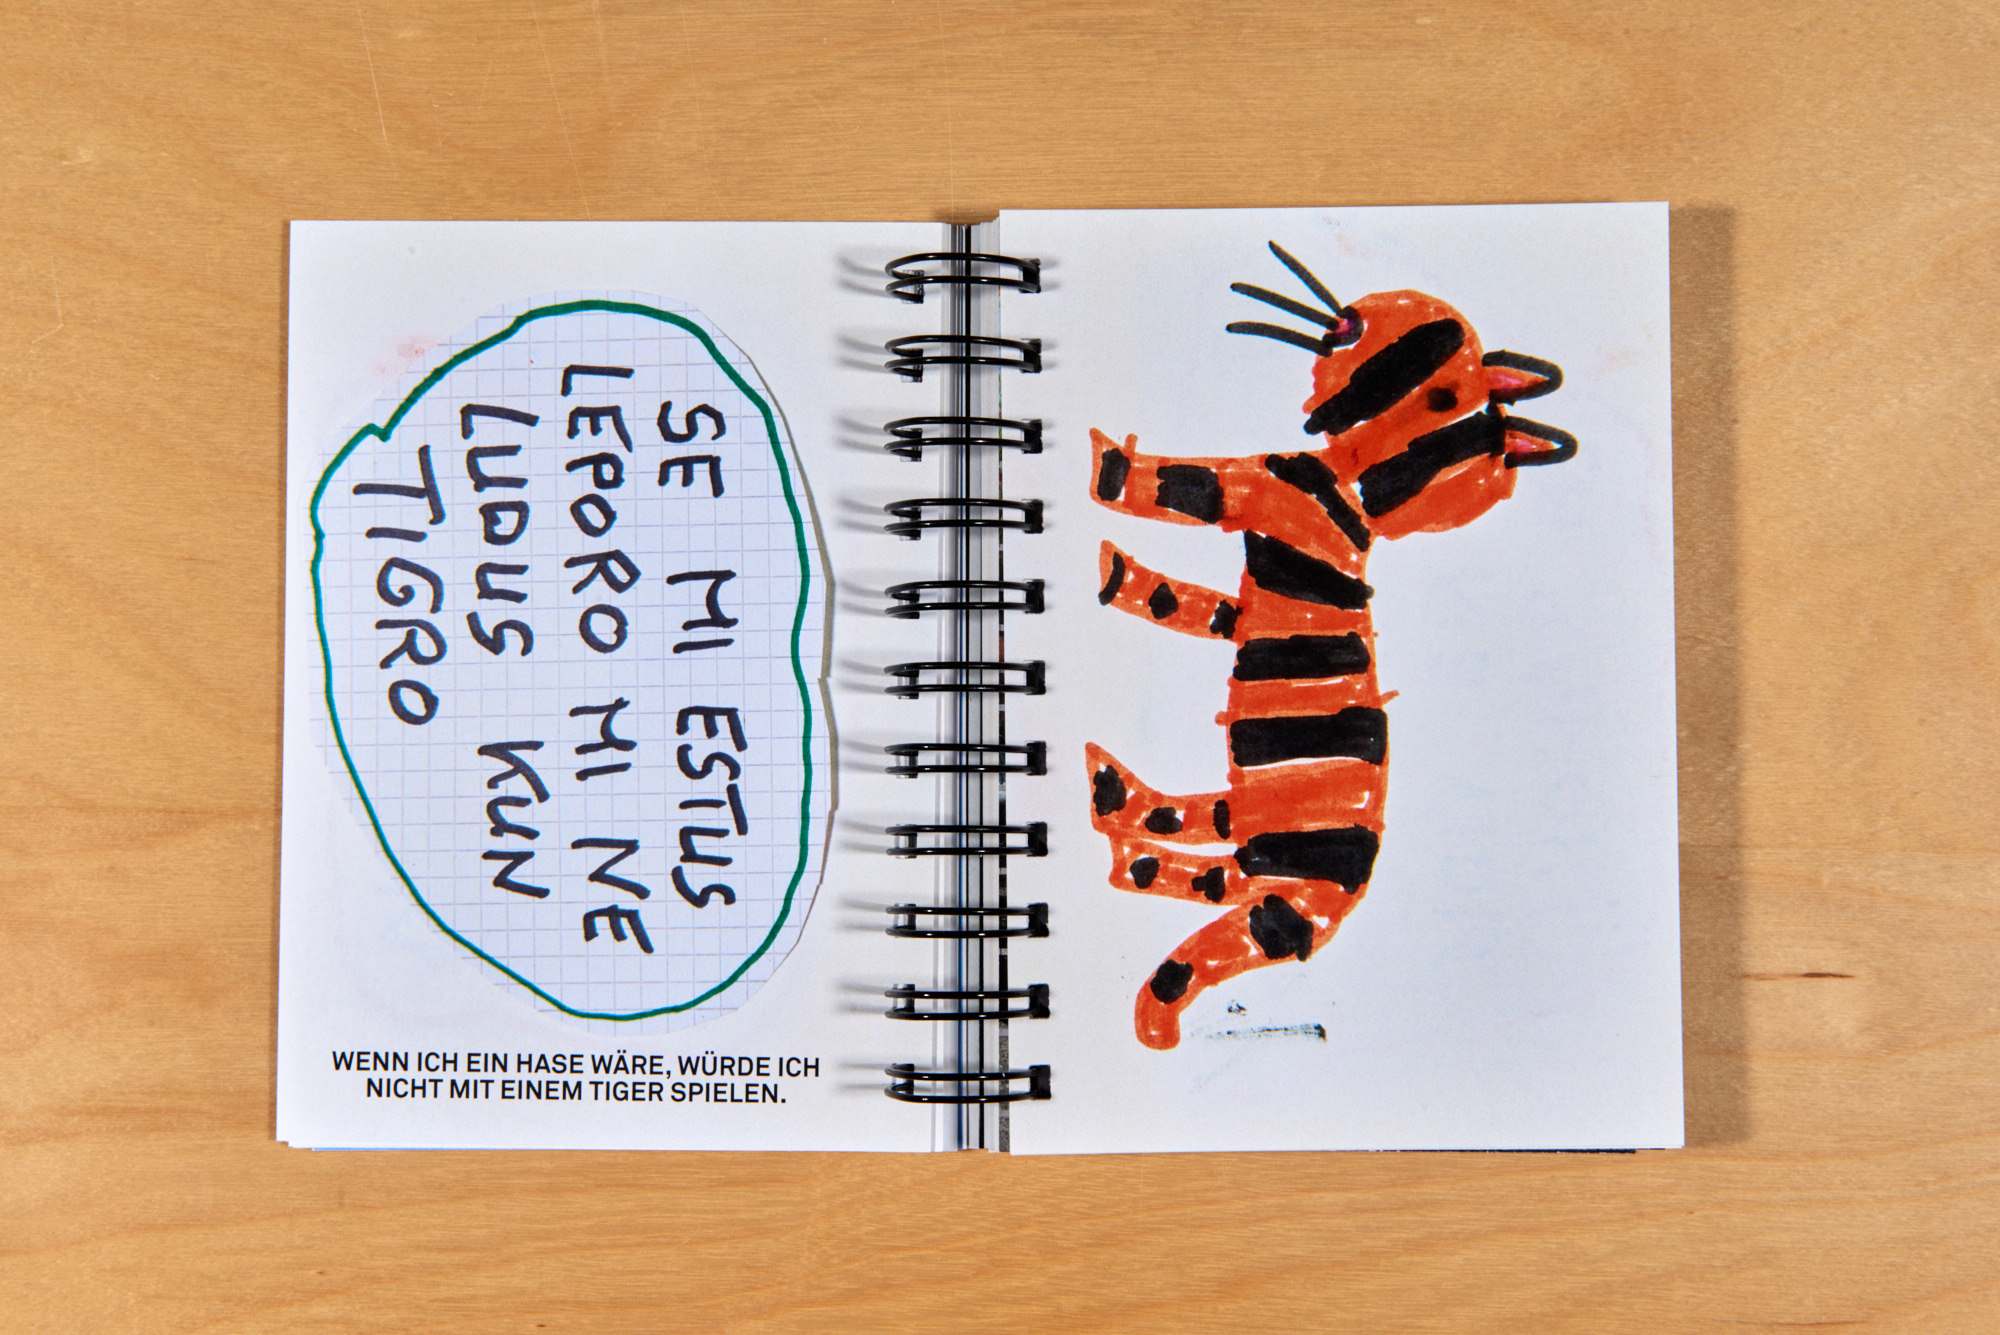 SE MI ESTUS
LEPORO MI NE
LUDUS KUN
TIGRO
WENN ICH EIN HASE WÄRE, WÜRDE ICH
NICHT MIT EINEM TIGER SPIELEN.